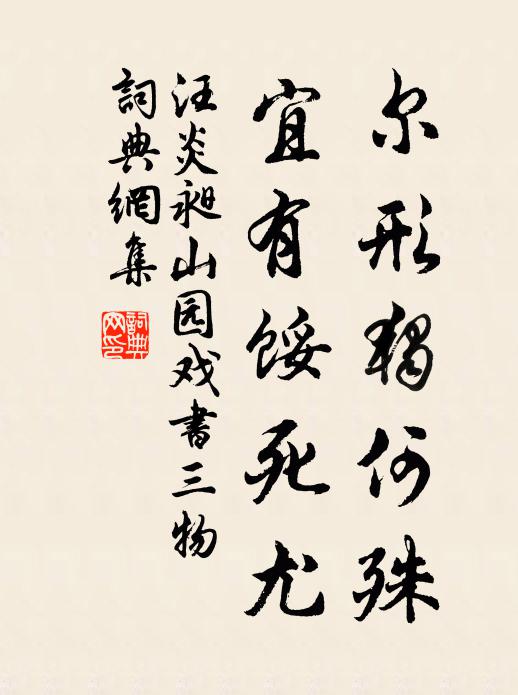 尔形独何殊
宜有馁死尤
汪炎昶山园戏书三物
詞典網集
詞典网印